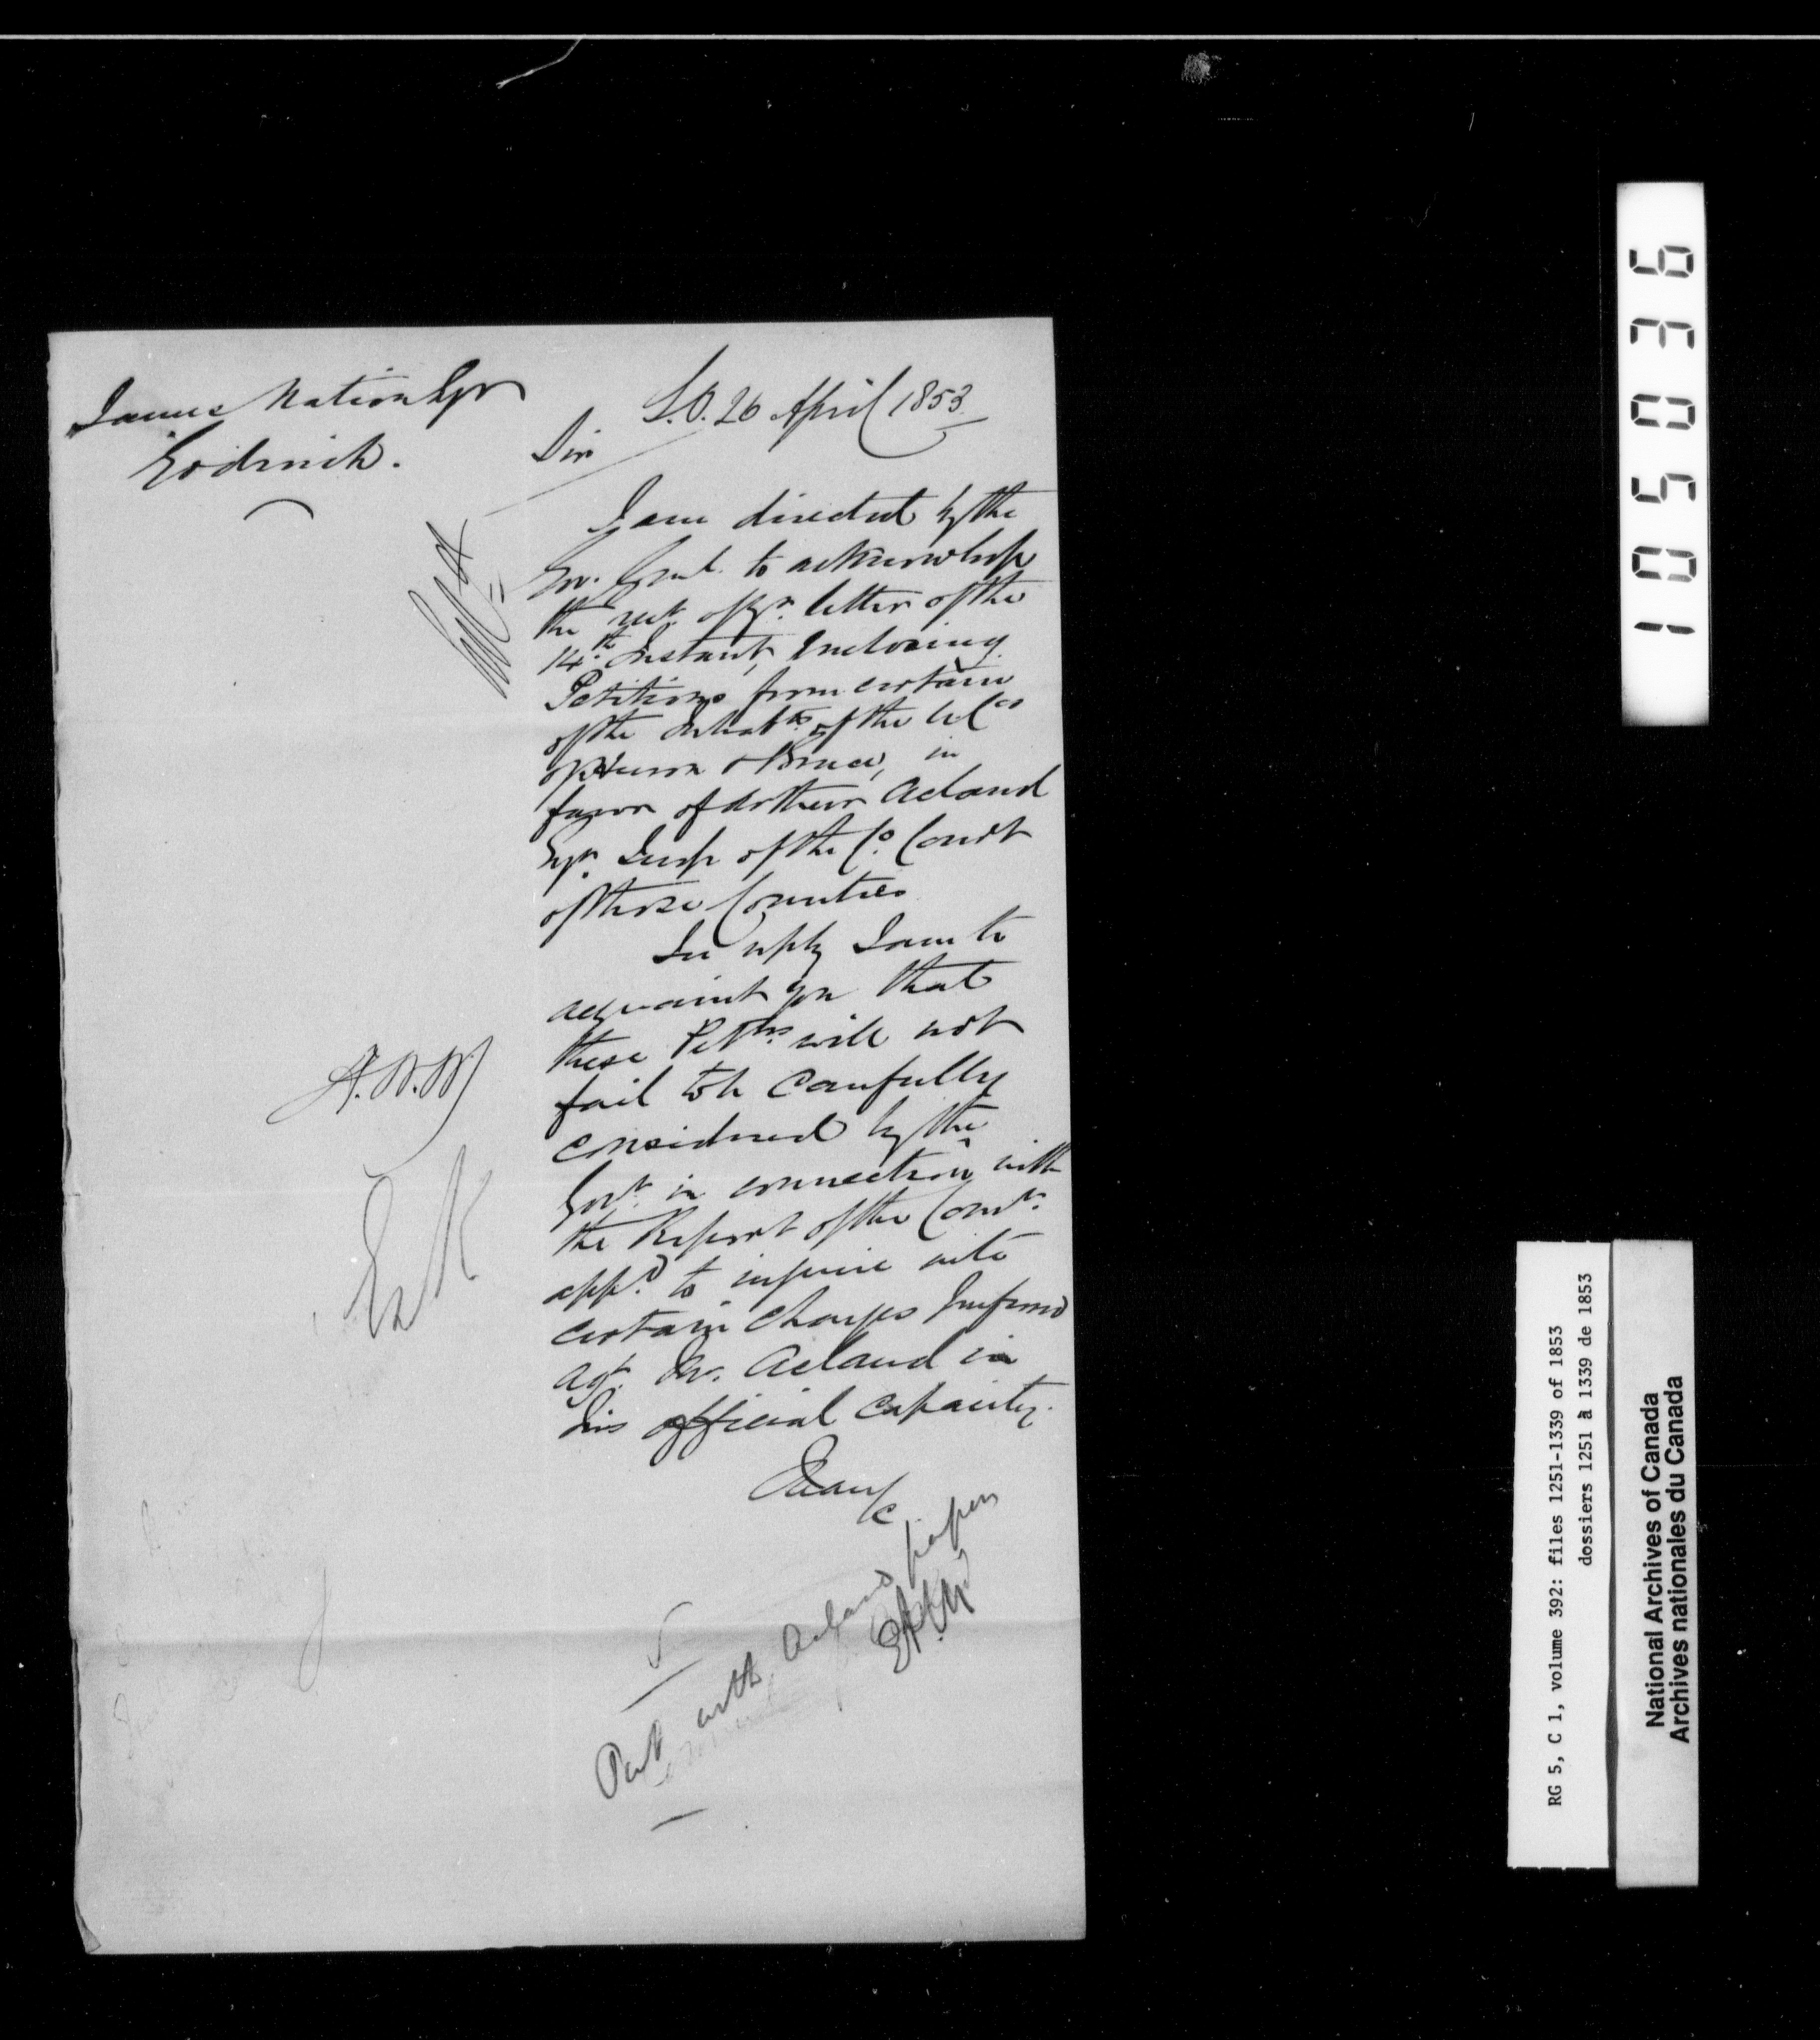 James Nation Esqr
Goderich.
S.O. 26 April 1853
Sir
I am directed by the
Gov. Genl. to acknowledge
the rect. of yr. letter of the
14th. Instant, enclosing
Petitions from certain
of the Inhabts. of the U Cos
of Huron & Bruce, in
favor of Arthur Acland
Esqr. Judge of the Co. Court
of those Counties
In reply I am to
acquaint you that
these Petns. will not
fail to be carefully
considered by the
Govt. in connection with
the Report of the Comrs.
appd. to inquire into
certain charges preferred
agt. Mr. Acland in
his official capacity.
I have &c
A.N.M
EK
Put with Acland papers
1 0 5 0 3 6
RG 5, C 1, volume 392: files 1251-1339 of 1853
dossiers 1251 à 1339 de 1853
National Archives of Canada
Archives nationales du Canada